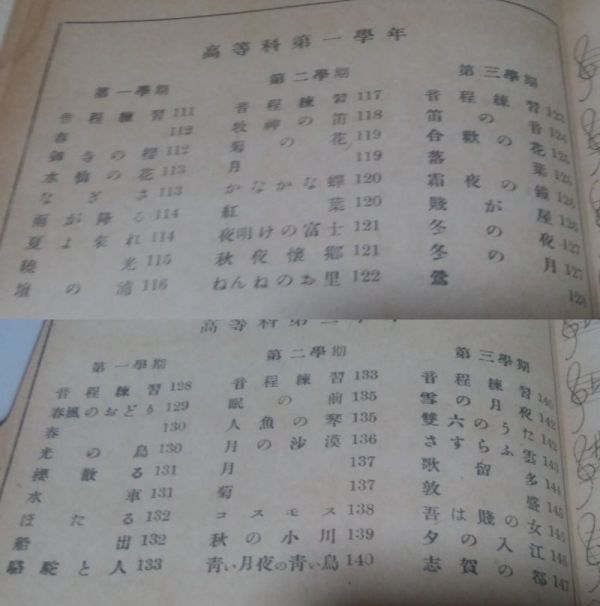 高等科第一學年
第一學期
音程練習 111
春 112
寺の櫻 112
の花 113
なぎさ 113
雨が降る 114
夏よ來れ 114
曉光 115
壇の浦 116
第二學期
音程練習 117
牧神の笛 118
菊の花 119
月 119
かなかな蟬 120
紅葉 120
夜明けの富士 121
秋夜懷鄉 121
ねんねのお里 122
第三學期
音程練習 123
笛の音 124
合歡の花 125
落葉 125
霜夜の鐘 126
賤が屋 126
冬の夜 127
冬の月 127
鶯 128
高等科第二學年
第一學期
音程練習 128
春風のおどり 129
春 130
光の鳥 130
櫻散る 131
水車 131
ほたる 132
船出 132
駱駝と人 133
第二學期
音程練習 133
眠の前 135
人魚の琴 135
月の沙漠 136
月 137
菊 137
コスモス 138
秋の小川 139
靑い月夜の靑い鳥 140
第三學期
音程練習 140
雪の月夜 142
雙六のうた 142
さすらふ雲 143
歌留多 144
敦盛 145
吾は賤の女 146
夕の入江 146
志賀の都 147